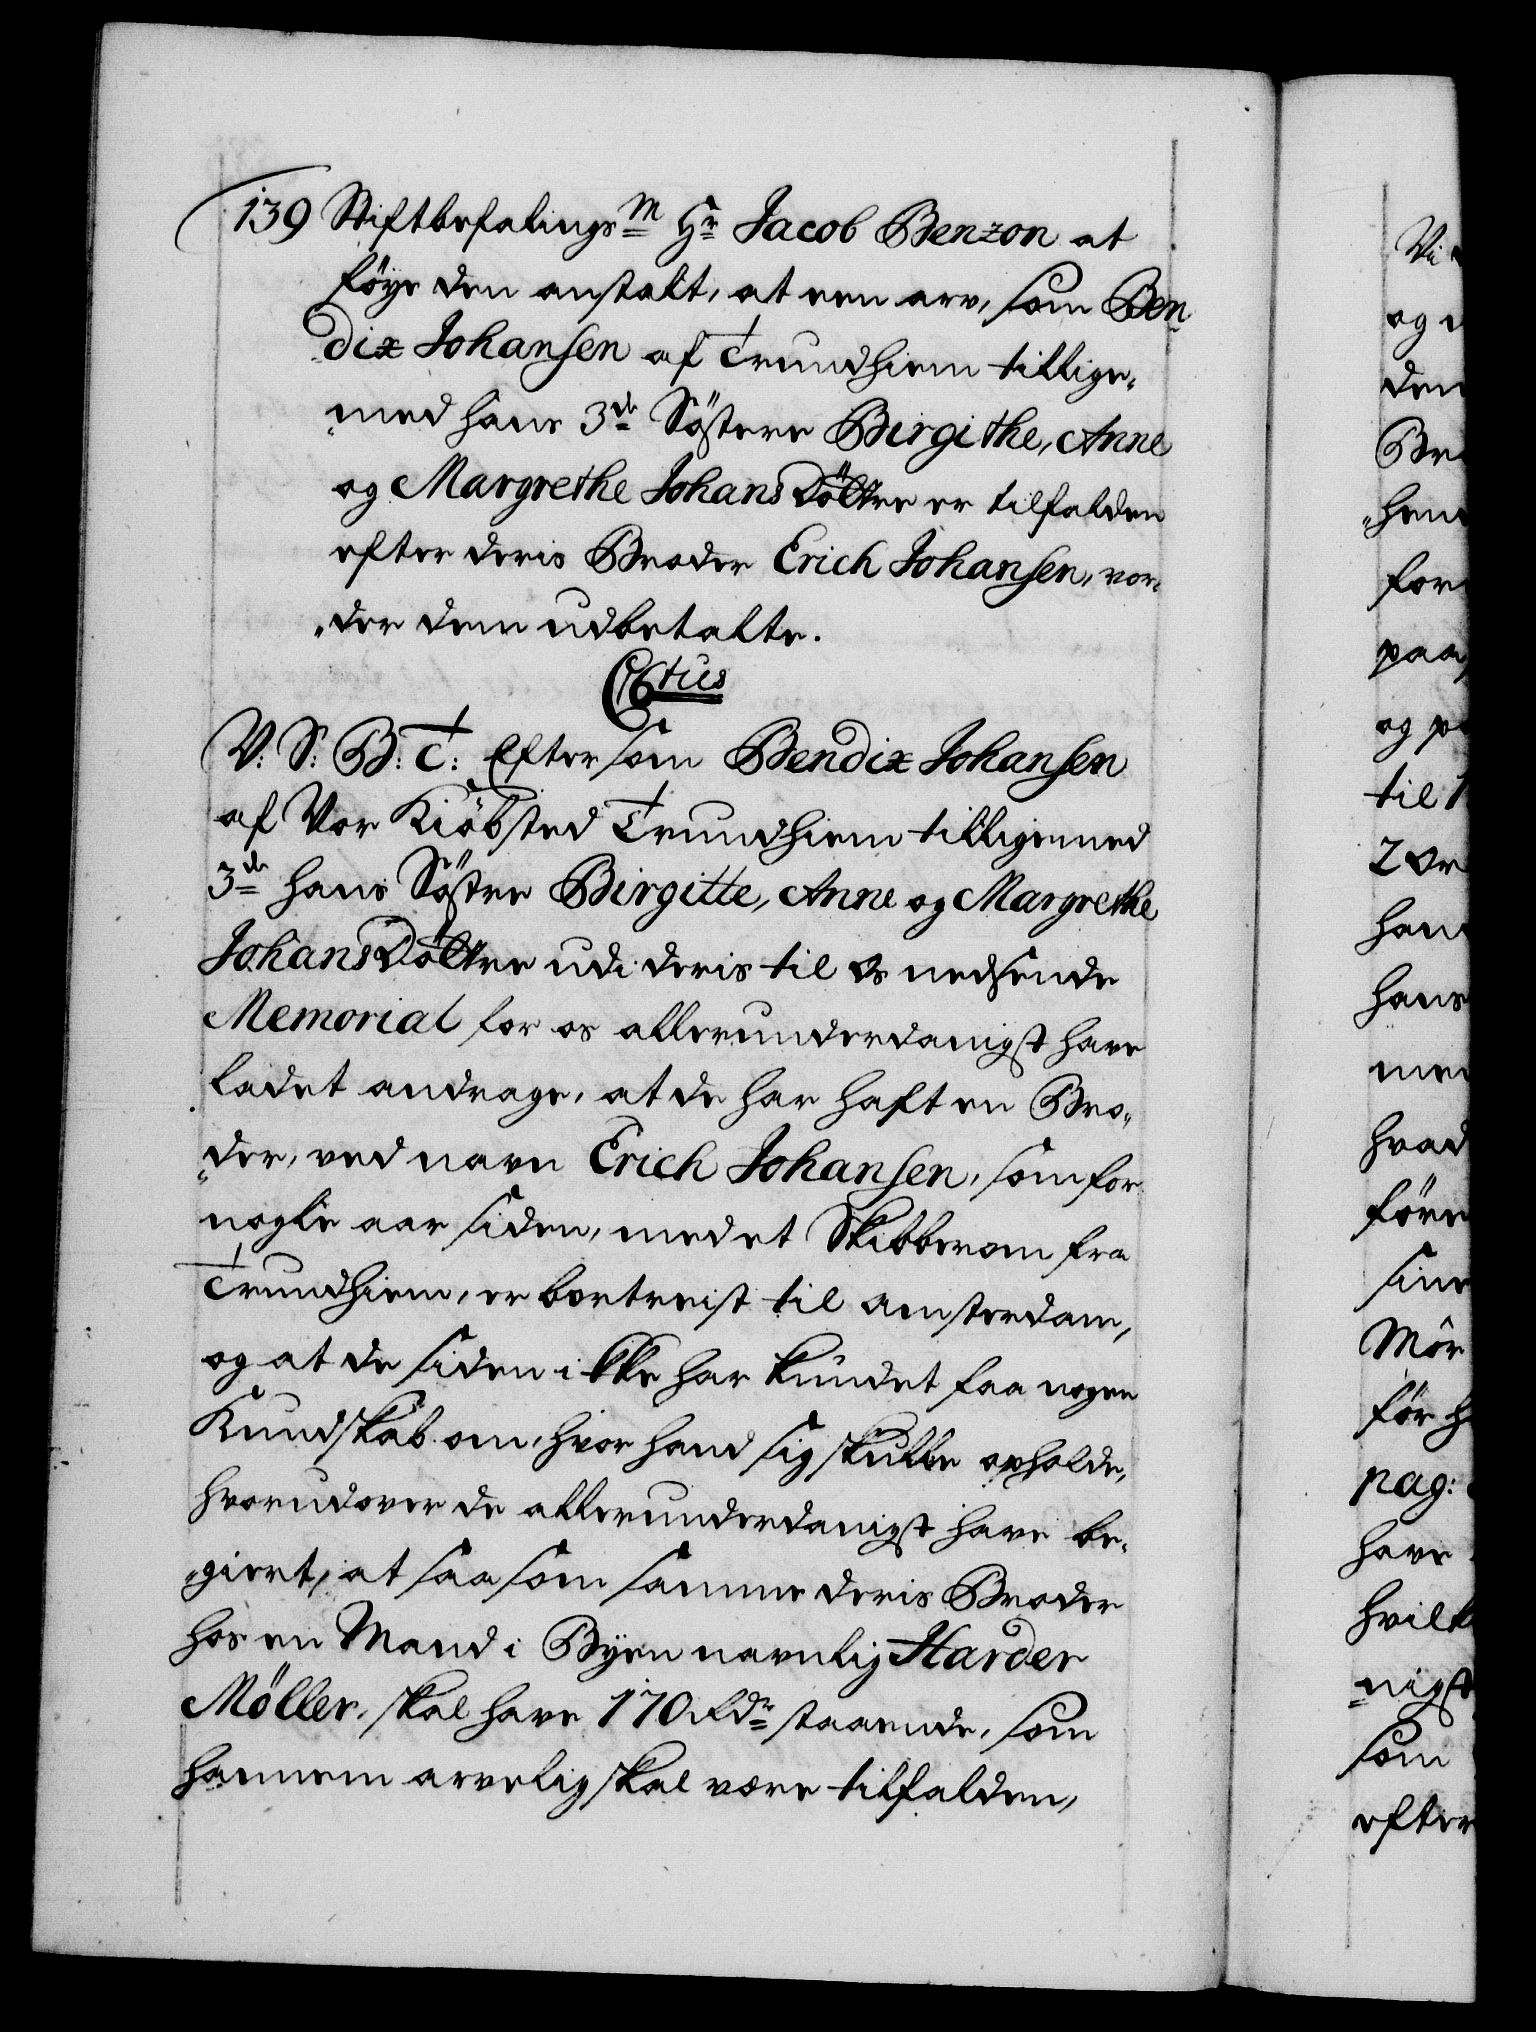 139 Stiftbefalings M Hr Jacob Benzon at
föye den anstalt, at een arv, som Ben-
dix Johansen af Trundhiem tillige-
med hans 3de Söstere Birgithe, Anne
og Margrethe Johans Döttre er tilfalden
efter deris Broder Erich Johansen, vor-
der dem udbetalte.
C6tus
V: S: B: T: Eftersom Bendix Johansen
af Vor Kiöbsted Trundhiem tilligemed
3de hans Söstre Birgitte, Anne og Margrethe
Johans Döttre udi deris til Os nedsende
Memorial for os allerunderdanigst have
ladet andrage, at de har haft en Bro-
der, ved navn Erich Johansen, som for
nogle aar siden, med et Skibberom fra
Trundhiem, er bortreist til Amsterdam,
og at de siden ikke har kundet faa nogen
Kundskab om, hvor hand sig skulle opholde,
hvorudover de allerunderdanigst have be-
giert, at saasom samme deris Broder
hos en Mand i Byen navnlig Harder
Möller, skal have 170 Rdr staaende, som
hannem arvelig skal være tilfalden,
Vi
og
den
Br
hen
for
paa
og p
til 1
2 Or
han
hans
med
hvad
före
sine
Mör
för h
pag:
have
hvilk
nigst
som
efter